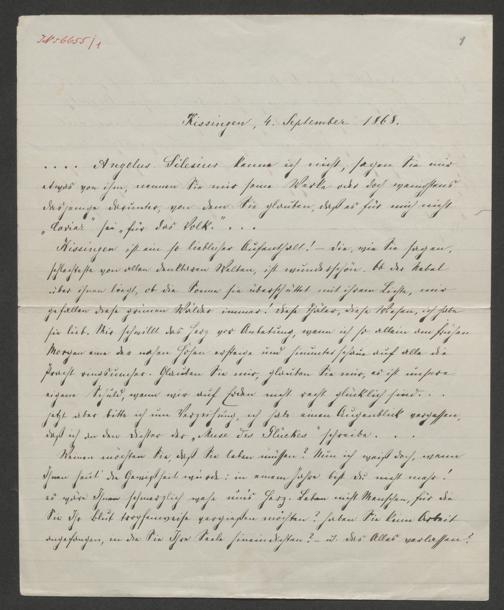 IN 56655/1
1
Kissingen, 4. September 1868.
. . . . Angelus Silesius kenne ich nicht, sagen Sie mir
etwas von ihm, nennen Sie mir seine Werke oder doch wenigstens
dasjenige darunter, von dem Sie glauben, daß es für mich nicht
„Caviar" sei „für das Volk." . . .
Kissingen ist ein so lieblicher Aufenthalt! – die, wie Sie sagen,
schlechteste von allen denkbaren Welten, ist wunderschön. Ob der Nebel
über ihnen liegt, ob die Sonne sie überschüttet mit ihrem Lichte, mir
gefallen diese grünen Wälder immer! diese Thäler, diese Wiesen, ich habe
sie lieb. Mir schwillt das Herz vor Anbetung, wenn ich so allein am frühen
Morgen eine der nahen Höhen ersteige und hinunterschaue auf alle die
Pracht ringsumher. Glauben Sie mir, glauben Sie mir, es ist unsere
eigene Schuld, wenn wir auf Erden nicht recht glücklich sind. . .
jetzt aber bitte ich um Verzeihung, ich habe einen Augenblick vergessen,
daß ich an den Dichter der „Muse des Glückes" schreibe. . . .
Warum möchten Sie, daß Sie leben müssen? Nun ich weiß doch, wenn
Ihnen heut' die Gewißheit würde: in einem Jahre bist du nicht mehr!
es wäre Ihnen schmerzlich wehe ums Herz. Leben nicht Menschen, für die
Sie Ihr Blut tropfenweise vergießen möchten? haben Sie keine Arbeit
angefangen, in die Sie Ihre Seele hineindichten? – u. das Alles verlassen?